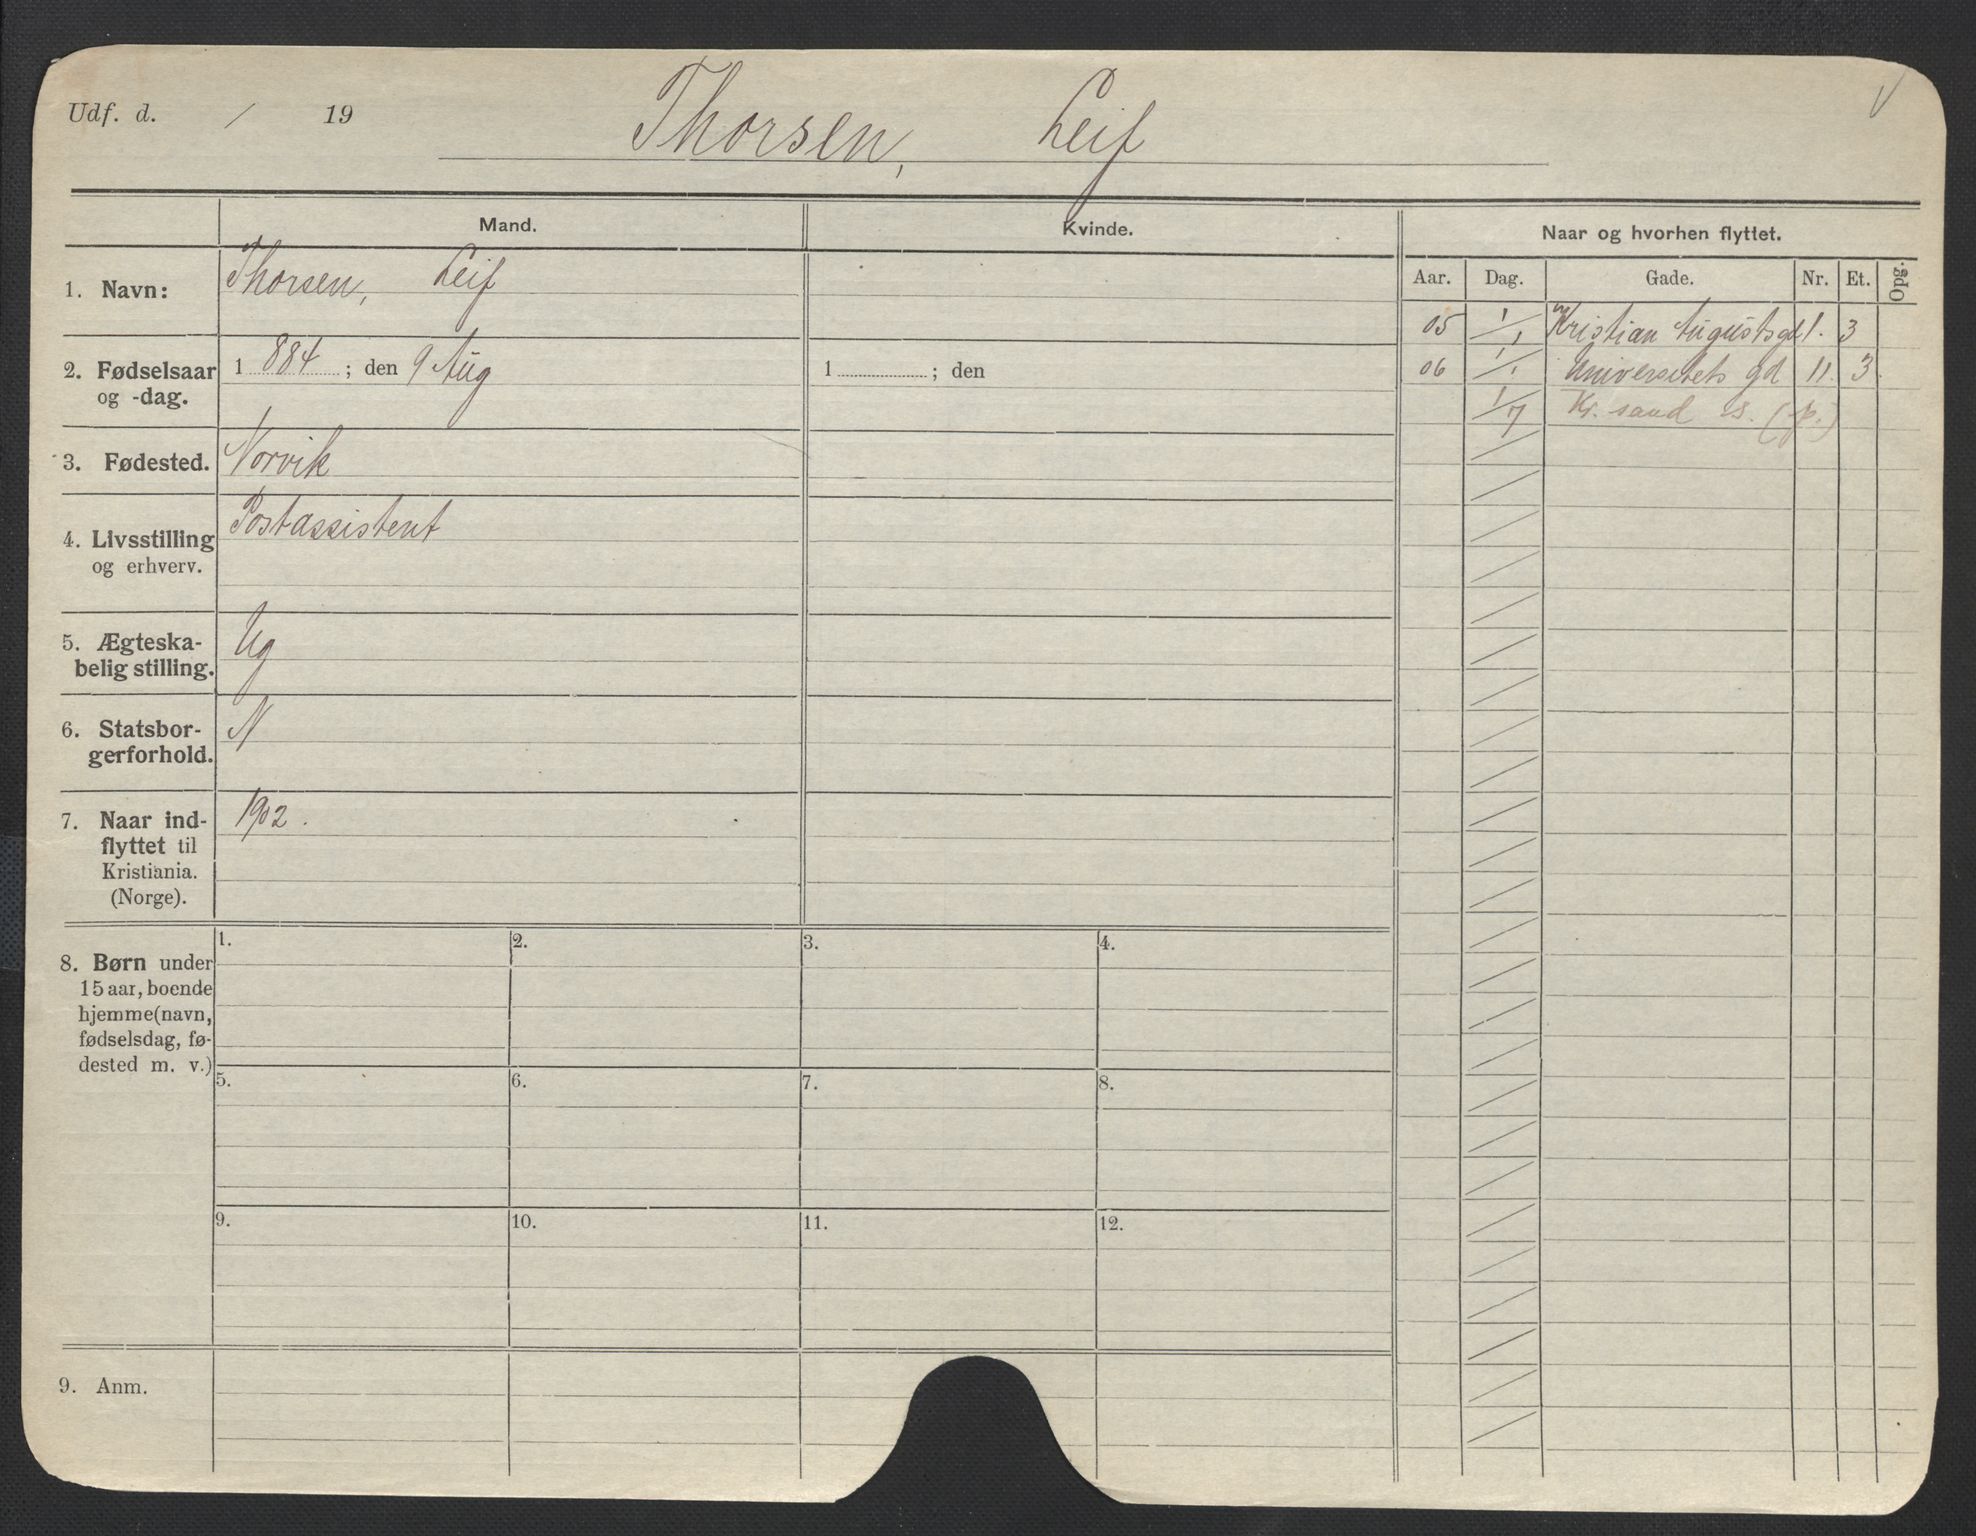 Udf. d. / 19
Thorsen, Leif
V
Mand.
Kvinde.
Naar og hvorhen flyttet.
Aar. Dag. Gade. Nr. Et. Opg.
1. Navn: Thorsen, Leif
05 1/1 Kristian Augustsgd 1. 3
2. Fødselsaar og -dag. 1 884 ; den 9 Aug
1 ; den
06 1/1 Universitets gd 11. 3.
1/7 Kr. sand s. (p.)
3. Fødested. Norvik
4. Livsstilling og erhverv. Postassistent
5. Ægteska-
belig stilling. Ug
6. Statsbor-
gerforhold. N
7. Naar ind-
flyttet til
Kristiania.
(Norge). 1902.
8. Børn under
15 aar, boende
hjemme (navn,
fødselsdag, fø-
dested m. v.)
1. 2. 3. 4.
5. 6. 7. 8.
9. 10. 11. 12.
9. Anm.